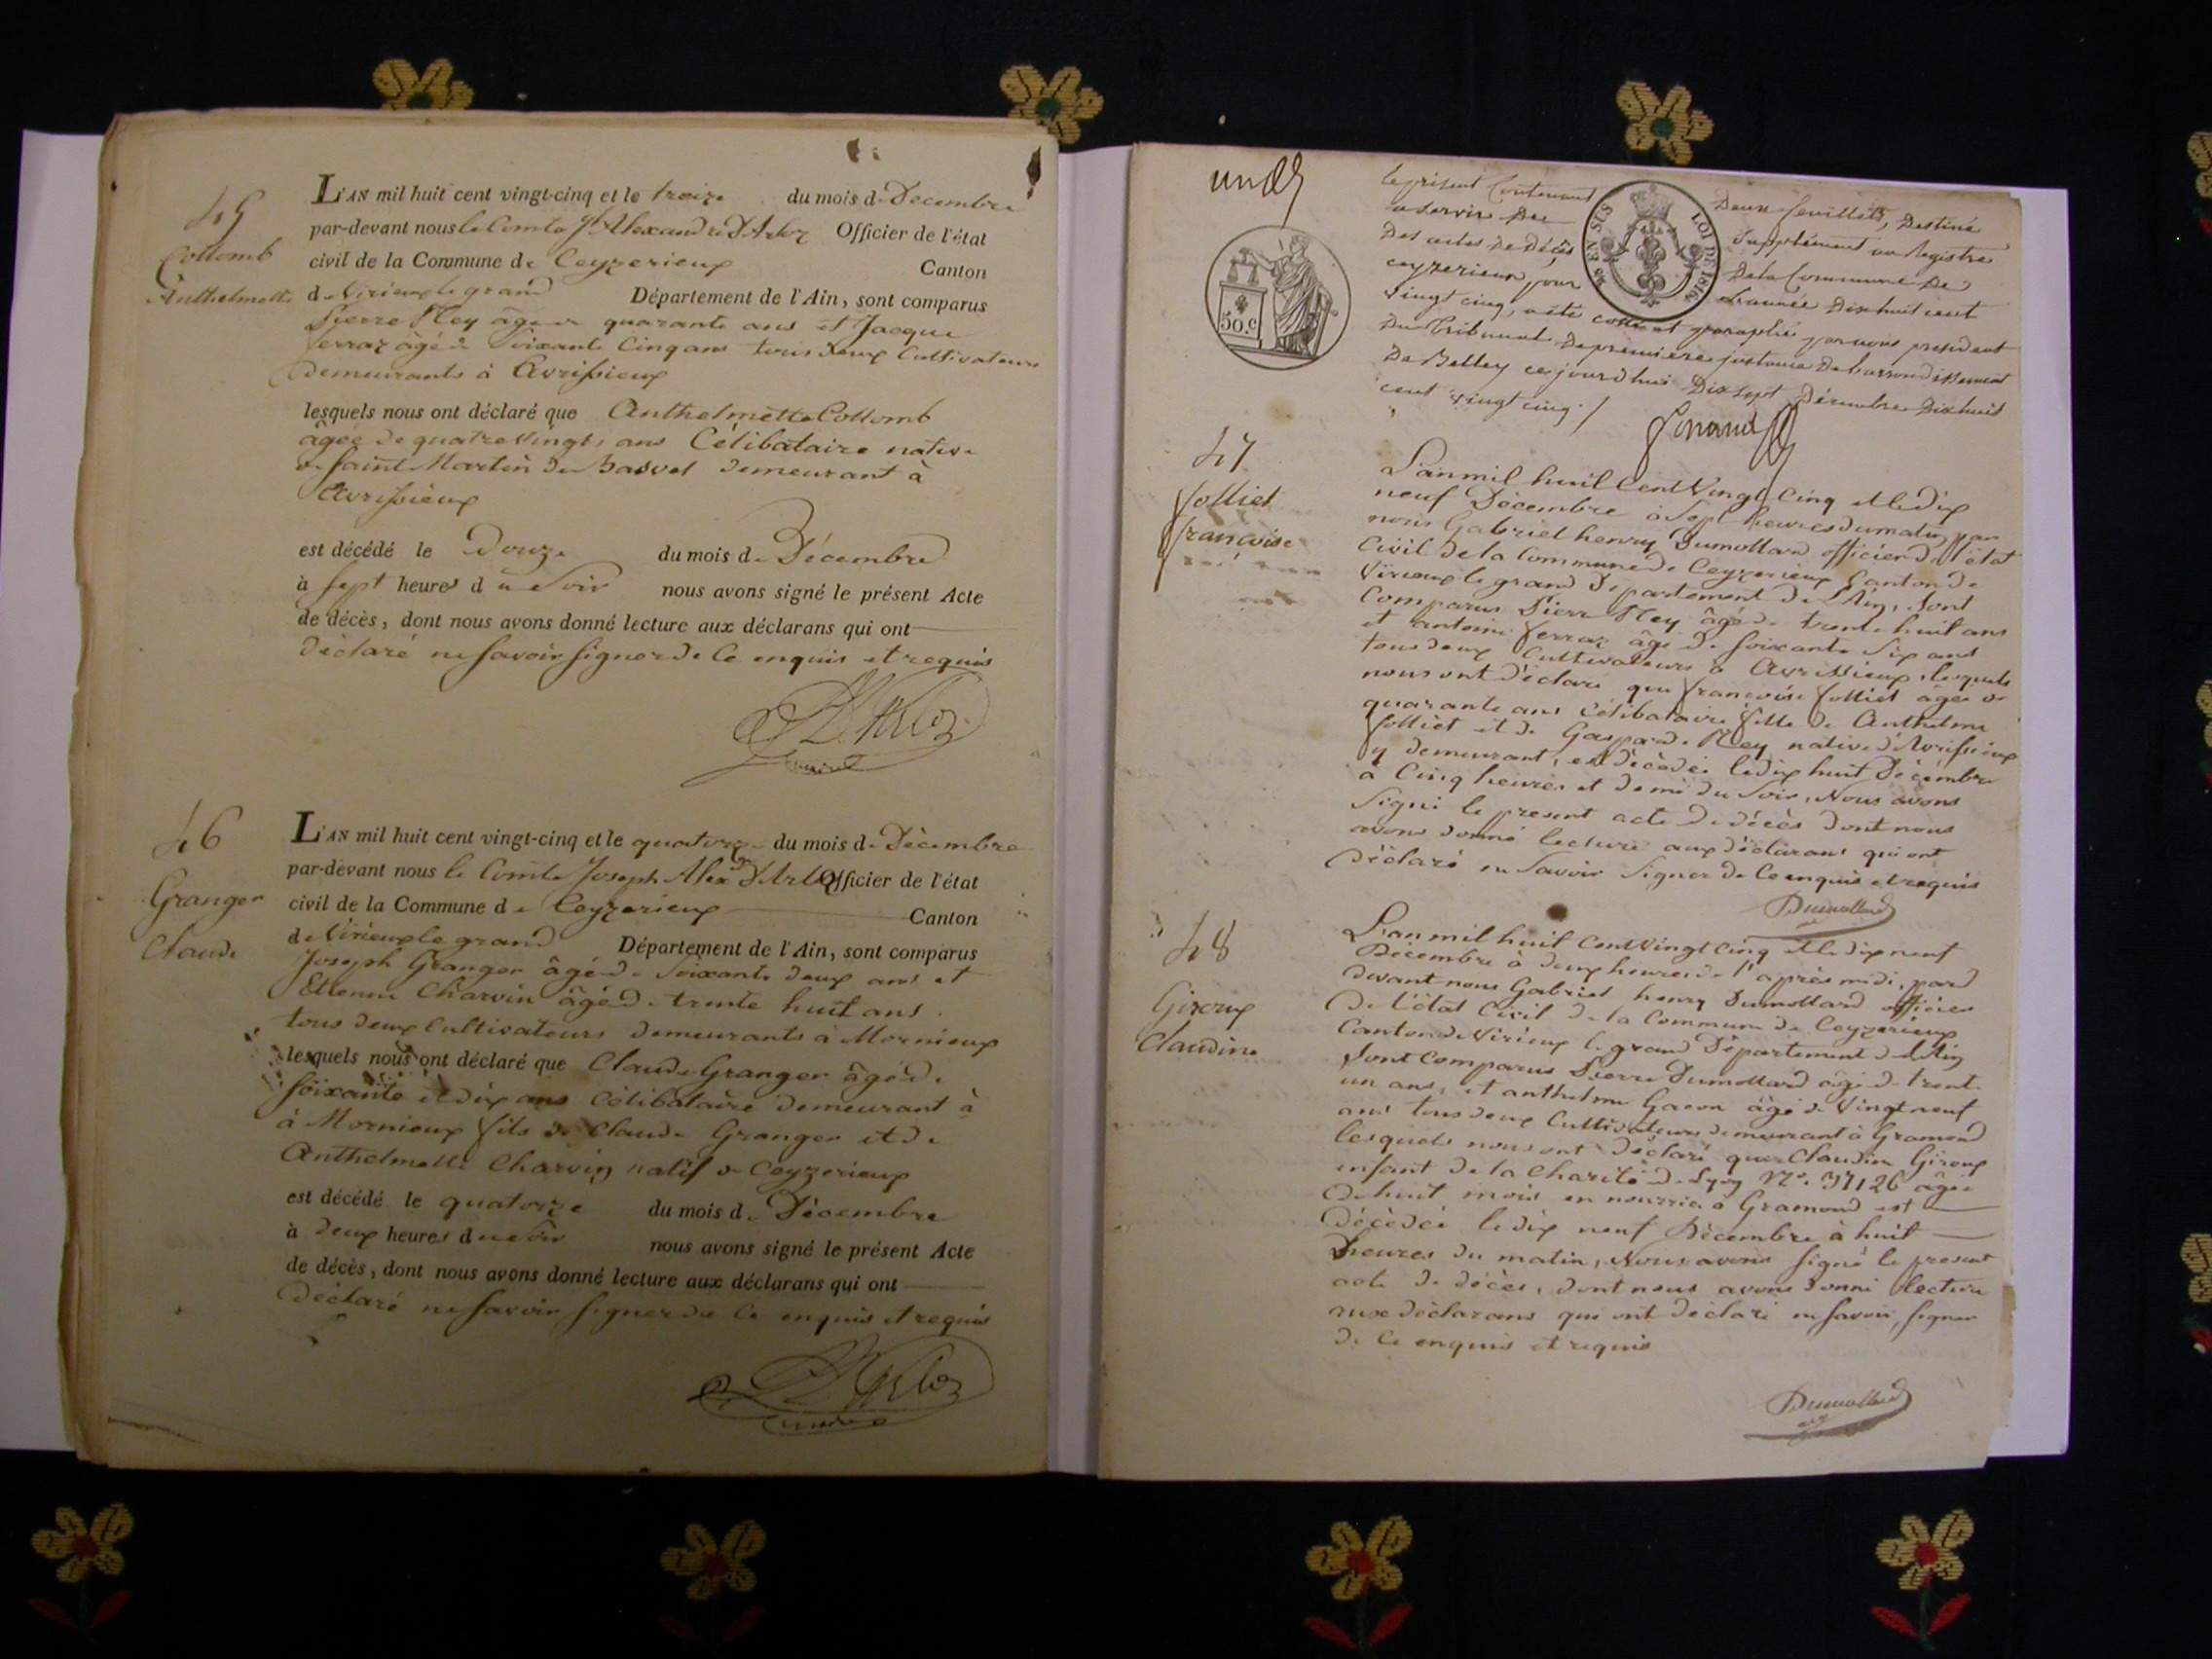 45
Collomb
Anthelmette
L'AN mil huit cent vingt-cinq et le treize du mois de Décembre
par-devant nous le Comte Jh Alexandre D'Arloz Officier de l'état
civil de la Commune de Ceyzerieux Canton
de Virieux le grand Département de l'Ain, sont comparus
Pierre Rey âgé de quarante ans et Jacque
ferraz âgé de soixante Cinq ans tous deux Cultivateurs
demeurants à Avrissieux
lesquels nous ont déclaré que Anthelmette Collomb
âgée de quatre Vingts ans Célibataire native
de Saint Martin de Bavel demeurant à
Avrissieux
est décédé le Douze du mois de Décembre
à Sept heures du Soir nous avons signé le présent Acte
de décès, dont nous avons donné lecture aux déclarans qui ont
déclaré ne savoir signer de Ce enquis et requis
D'Arloz
46
Granger
Claude
L'AN mil huit cent vingt-cinq et le quatorze du mois de Décembre
par-devant nous le Comte Joseph Alexdre D'Arloz Officier de l'état
civil de la Commune de Ceyzerieux Canton
de Virieux le grand Département de l'Ain, sont comparus
Joseph Granger âgé de Soixante deux ans et
Etienne Charvin âgé de trente huit ans
tous deux Cultivateurs demeurants à Mornieux
lesquels nous ont déclaré que Claude Granger âgé de
Soixante et dix ans Célibataire demeurant à
à Mornieux fils de Claude Granger et de
Anthelmette Charvin natif de Ceyzerieux
est décédé le quatorze du mois de Décembre
à deux heures du Soir nous avons signé le présent Acte
de décès, dont nous avons donné lecture aux déclarans qui ont
déclaré ne savoir signer de Ce enquis et requis
D'Arloz
un
50.c
EN SUS LOI DE 1816
le présent Contenant Deux feuillets, Destiné
a servir De Supplément au Registre
Des actes De Décès De la Commune De
ceyzerieux pour L'année Dix huit cent
vingt cinq, a été cotté et paraphé par nous president
Du Tribunal De premiere instance De L'arrondissement
De Belley ce jourd'hui Dix sept Décembre Dix huit
cent vingt cinq ./
47
folliet
françoise
L'an mil huit Cent Vingt Cinq et le dix
neuf Décembre à Sept heures du matin, par
nous Gabriel henry Dumollard officier de l'état
Civil de la Commune de Ceyzerieux Canton de
Virieux le grand Département de L'Ain, Sont
Comparus Pierre Rey âgé de trente huit ans
et antoine ferraz âgé de soixante Six ans
tous deux Cultivateurs à Avrissieux, lesquels
nous ont déclaré que françoise folliet âgée de
quarante ans Célibataire fille de Anthelme
folliet et de Gasparde Rey native d'Avrissieux
y demeurant, est décédée le dix huit Décembre
à Cinq heures et demi du Soir, Nous avons
Signé le present acte de décès dont nous
avons donné lecture aux déclarans qui ont
déclaré ne Savoir Signer de Ce enquis et requis
Dumollard
48
Giroux
Claudine
L'an mil huit Cent Vingt Cinq et le dix neuf
Décembre à deux heures de l'après midi, pard
devant nous Gabriel henry Dumollard officier
de l'état Civil de la Commune de Ceyzerieux
Canton de Virieux le grand Département de l'Ain
Sont Comparus Pierre Dumollard âgé de trente
un ans, et anthelme Gacon âgé de Vingt neuf
ans tous deux Cultivateurs demeurant à Gramond
lesquels nous ont déclaré que Claudine Giroux
enfant de la Charité de Lyon N°. 37126 âgée
de huit mois en nourrice a Gramond est
décédée le dix neuf Décembre à huit
heures du matin, Nous avons signé le present
acte de décès, dont nous avons donné lecture
aux déclarans qui ont déclaré ne savoir, signer
de Ce enquis et requis
Dumollard